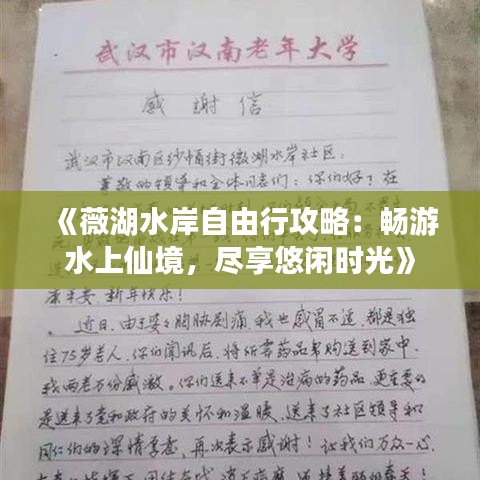 武汉市汉南老年大学
感謝信
武汉市汉南区纱帽街微湖水岸社区:
尊敬的领导和全体同志们:你们好!在
《薇湖水岸自由行攻略:畅游
水上仙境,尽享悠闲时光》
康平安,新年快乐!
近日,由于婆々胸肋剧痛,我也感冒不适,都是独
住75岁老人,你们闻讯后,将所需药品帮购送到家中,
我两老万份感激。你们送来不单是治病的药品,更重要的
是送来了党和政府的关怀和温暖,送来了社区领导和
同仁们的深情厚意,再次表示感谢!让我们万众一心,